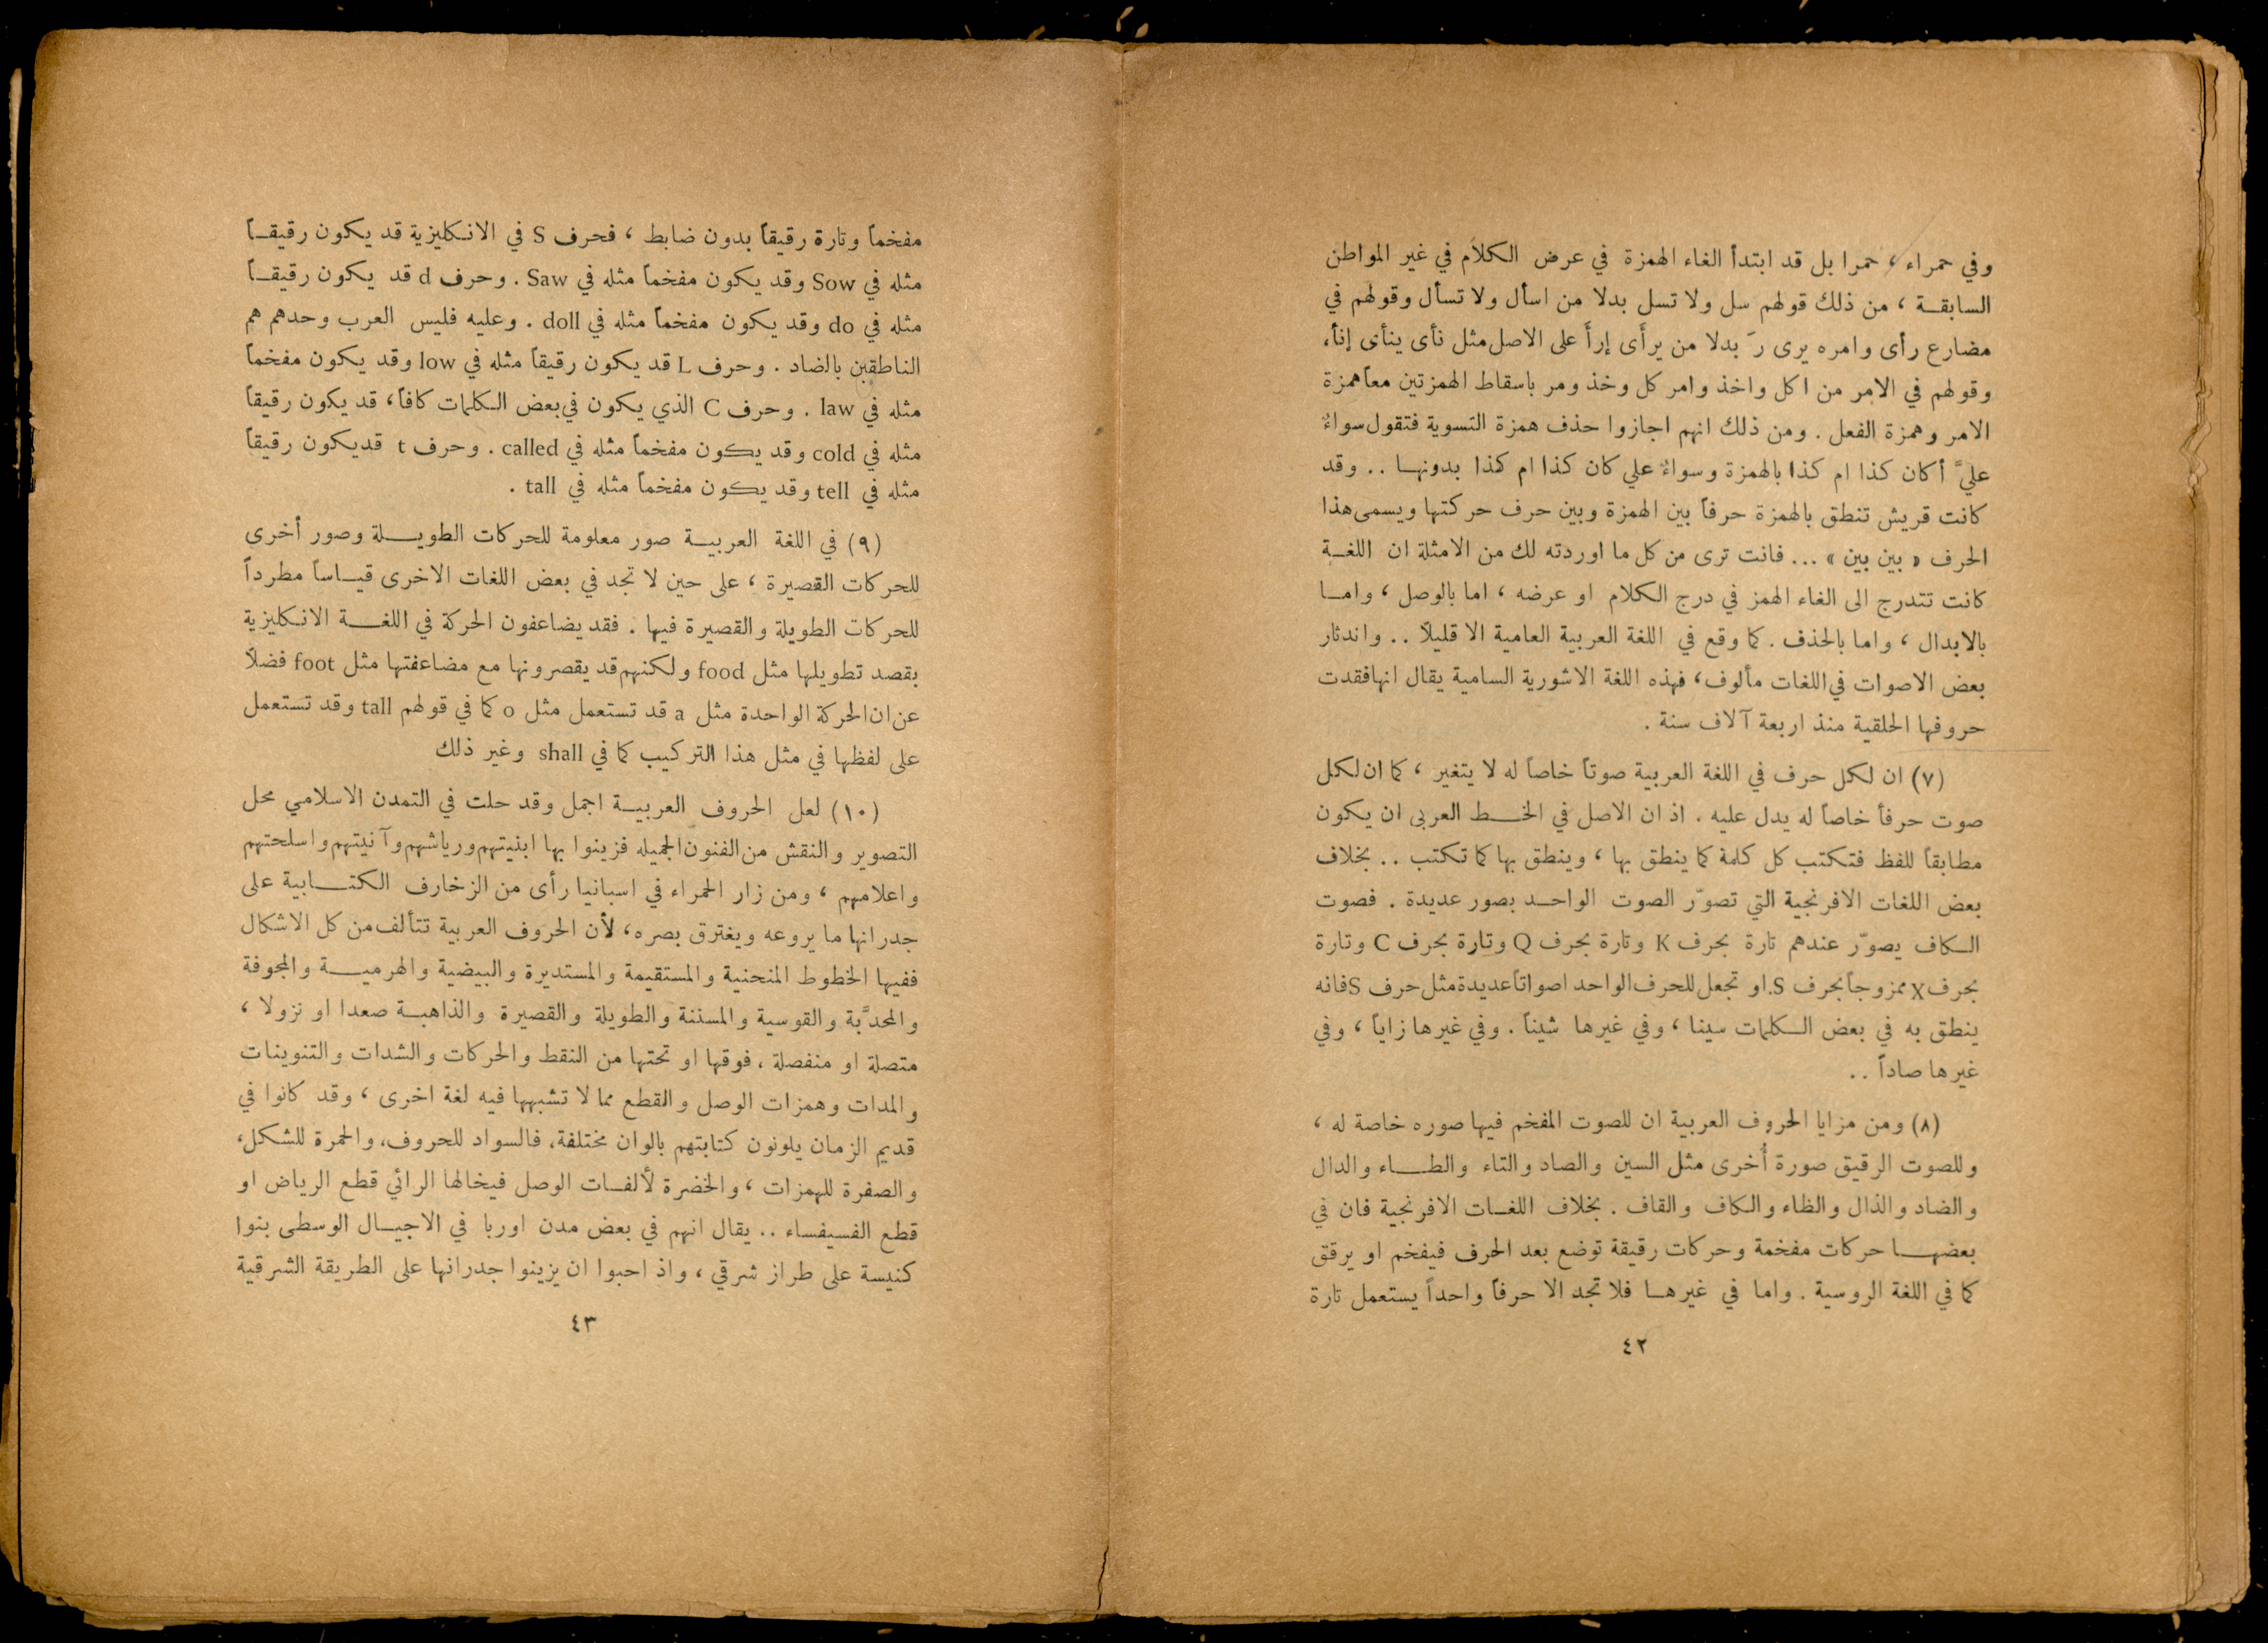 وفي حمراء ، حمرا بل قد ابتدأ الغاء الهمزة في عرض الكلام في غير المواطن
السابقة ، من ذلك قولهم سل ولا تسل بدلا من اسأل ولا تسأل وقولهم في
مضارع رأى وامره يرى رَ بدلا من يرأَى إرأَ على الاصل مثل نأى ينأى إنأ،
وقولهم في الامر من اكل واخذ وامر كل وخذ ومر باسقاط الهمزتين معاً همزة
الامر وهمزة الفعل . ومن ذلك انهم اجازوا حذف همزة التسوية فتقول سواءٌ
عليَّ أكان كذا ام كذا بالهمزة وسواءٌ علي كان كذا ام كذا بدونها .. وقد
كانت قريش تنطق بالهمزة حرفاً بين الهمزة وبين حرف حركتها ويسمى هذا
الحرف « بين بين » ... فانت ترى من كل ما اوردته لك من الامثلة ان اللغة
كانت تتدرج الى الغاء الهمز في درج الكلام او عرضه ، اما بالوصل ، واما
بالابدال ، واما بالحذف . كما وقع في اللغة العربية العامية الا قليلاً .. واندثار
بعض الاصوات في اللغات مألوف، فهذه اللغة الاشورية السامية يقال انها فقدت
حروفها الحلقية منذ اربعة آلاف سنة .
(٧) ان لكل حرف في اللغة العربية صوتاً خاصاً له لا يتغير ، كما ان لكل
صوت حرفاً خاصاً له يدل عليه . اذ ان الاصل في الخط العربي ان يكون
مطابقاً للفظ فتكتب كل كلمة كما ينطق بها ، وينطق بها كما تكتب .. بخلاف
بعض اللغات الافرنجية التي تصوّر الصوت الواحد بصور عديدة . فصوت
الكاف يصوّر عندهم تارة بحرف K وتارة بحرف Q وتارة بحرف C وتارة
بحرف X ممزوجاً بحرف S. او تجعل للحرف الواحد اصواتاً عديدة مثل حرف S فانه
ينطق به في بعض الكلمات سينا ، وفي غيرها شيناً . وفي غيرها زاياً ، وفي
غيرها صاداً ..
(٨) ومن مزايا الحروف العربية ان للصوت المفخم فيها صوره خاصة له ،
وللصوت الرقيق صورة أُخرى مثل السين والصاد والتاء والطاء والدال
والضاد والذال والظاء والكاف والقاف . بخلاف اللغات الافرنجية فان في
بعضها حركات مفخمة وحركات رقيقة توضع بعد الحرف فيفخم او يرقق
كما في اللغة الروسية . واما في غيرها فلا تجد الا حرفاً واحداً يستعمل تارة
٤٢
مفخماً وتارة رقيقاً بدون ضابط ، فحرف S في الانكليزية قد يكون رقيقاً
مثله في Sow وقد يكون مفخماً مثله في Saw . وحرف d قد يكون رقيقاً
مثله في do وقد يكون مفخماً مثله في doll . وعليه فليس العرب وحدهم هم
الناطقين بالضاد . وحرف L قد يكون رقيقاً مثله في low وقد يكون مفخماً
مثله في law . وحرف C الذي يكون في بعض الكلمات كافاً، قد يكون رقيقاً
مثله في cold وقد يكون مفخماً مثله في called . وحرف t قد يكون رقيقاً
مثله في tell وقد يكون مفخماً مثله في tall .
(٩) في اللغة العربية صور معلومة للحركات الطويلة وصور أخرى
للحركات القصيرة ، على حين لا تجد في بعض اللغات الاخرى قياساً مطرداً
للحركات الطويلة والقصيرة فيها . فقد يضاعفون الحركة في اللغة الانكليزية
بقصد تطويلها مثل food ولكنهم قد يقصرونها مع مضاعفتها مثل foot فضلاً
عن ان الحركة الواحدة مثل a قد تستعمل مثل o كما في قولهم tall وقد تستعمل
على لفظها في مثل هذا التركيب كما في shall وغير ذلك
(١٠) لعل الحروف العربية اجمل وقد حلت في التمدن الاسلامي محل
التصوير والنقش من الفنون الجميله فزينوا بها ابنيتهم ورياشهم وآنيتهم واسلحتهم
واعلامهم ، ومن زار الحمراء في اسبانيا رأى من الزخارف الكتابية على
جدرانها ما يروعه ويغترق بصره، لأن الحروف العربية تتألف من كل الاشكال
ففيها الخطوط المنحنية والمستقيمة والمستديرة والبيضية والهرمية والمجوفة
والمحدَّبة والقوسية والمسننة والطويلة والقصيرة والذاهبة صعدا او نزولا ،
متصلة او منفصلة ، فوقها او تحتها من النقط والحركات والشدات والتنوينات
والمدات وهمزات الوصل والقطع مما لا تشبهها فيه لغة اخرى ، وقد كانوا في
قديم الزمان يلونون كتابتهم بالوان مختلفة، فالسواد للحروف، والحمرة للشكل،
والصفرة للهمزات ، والخضرة لألفات الوصل فيخالها الرائي قطع الرياض او
قطع الفسيفساء .. يقال انهم في بعض مدن اوربا في الاجيال الوسطى بنوا
كنيسة على طراز شرقي ، واذ احبوا ان يزينوا جدرانها على الطريقة الشرقية
٤٣